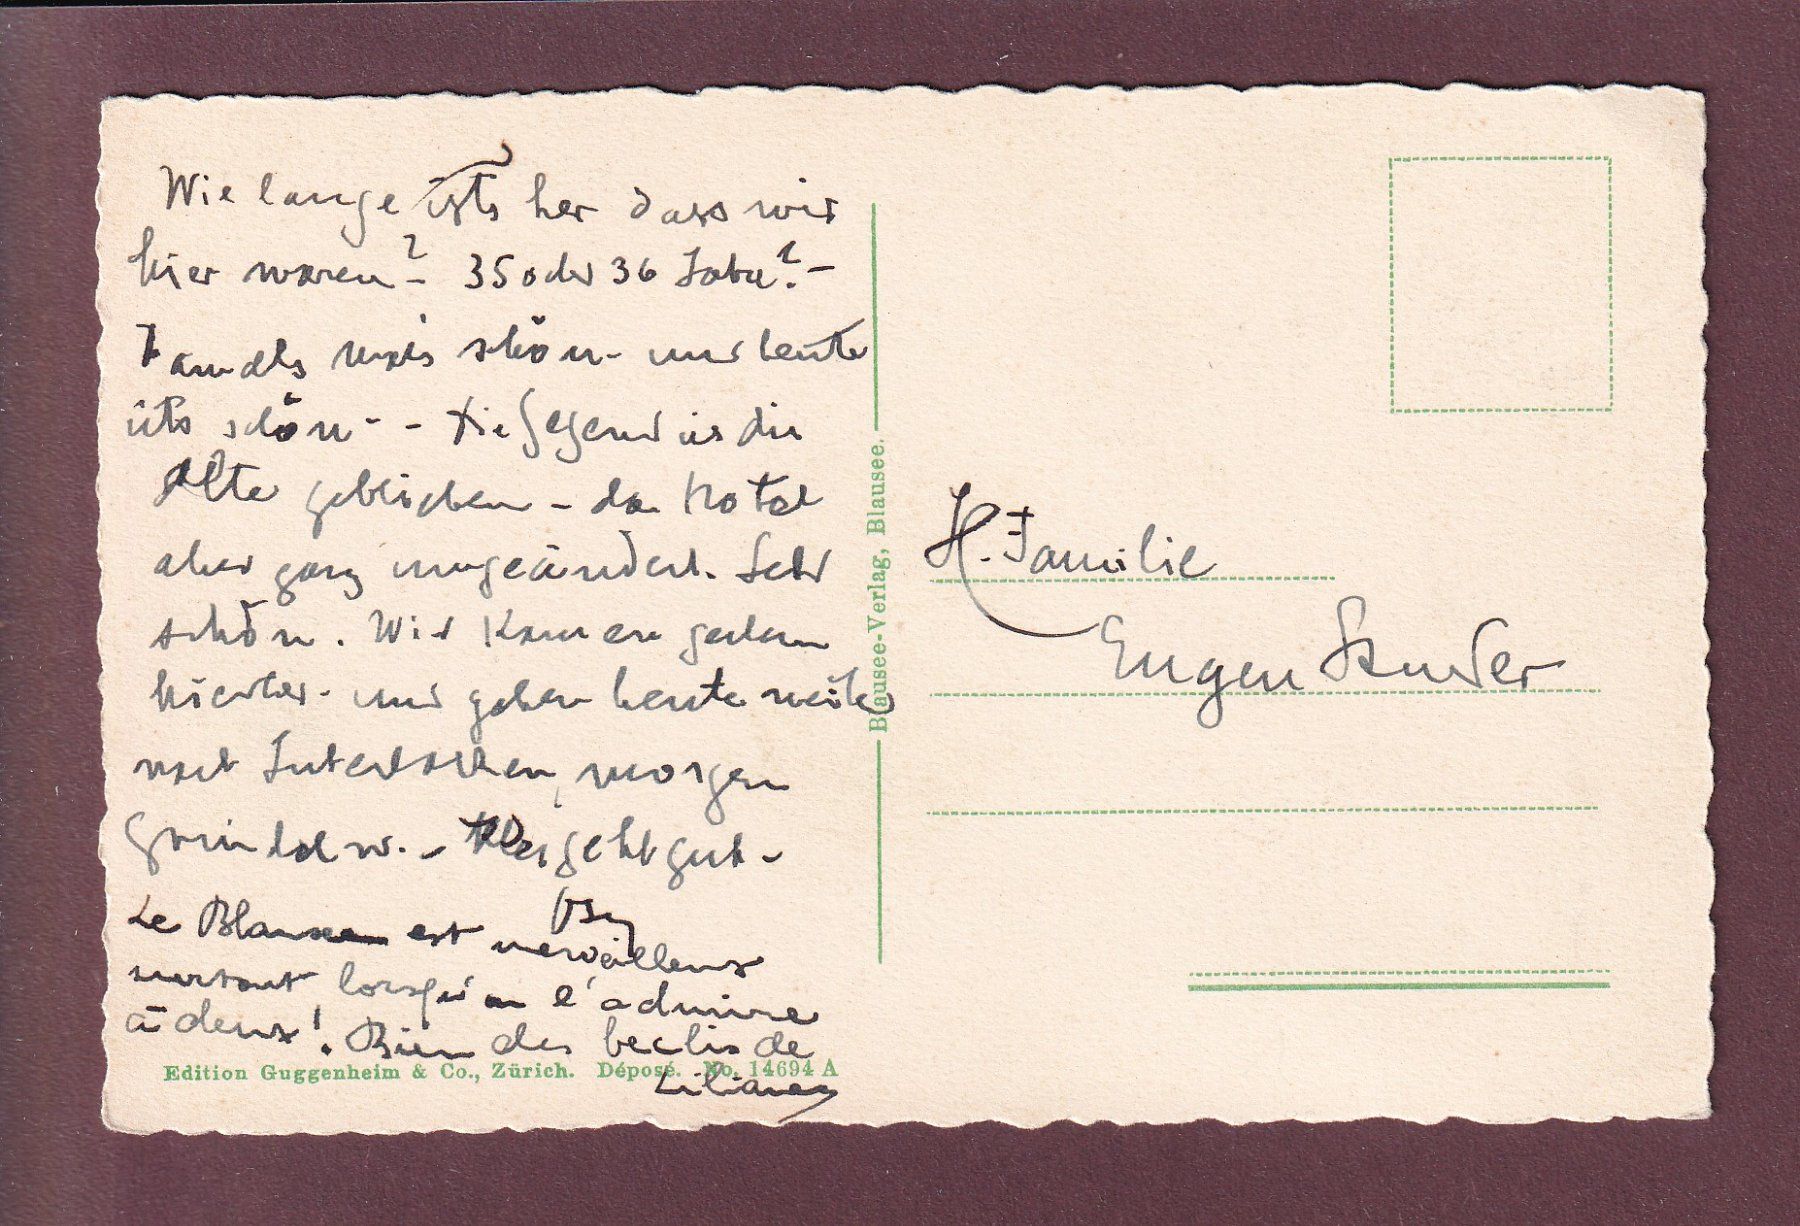 Wie lange ists her dass wir
hier waren? - 35 oder 36 Jahre? -
Damals wars schön - und heute
ists schön - - Die Gegend ist die
Alte geblieben - das Hotel
aber ganz umgeändert. Sehr
schön. Wir kamen gestern
hierher - und gehen heute weiter
nach Interlaken, morgen
Grindelw. - geht gut -
Le Blausee est merveilleux
surtout lorsqu'on l'admire
à deux! Bien des de
Liliane
Blausee-Verlag, Blausee.
H. Familie
Eugen Studer
Edition Guggenheim & Co., Zürich. Déposé. No. 14694 A